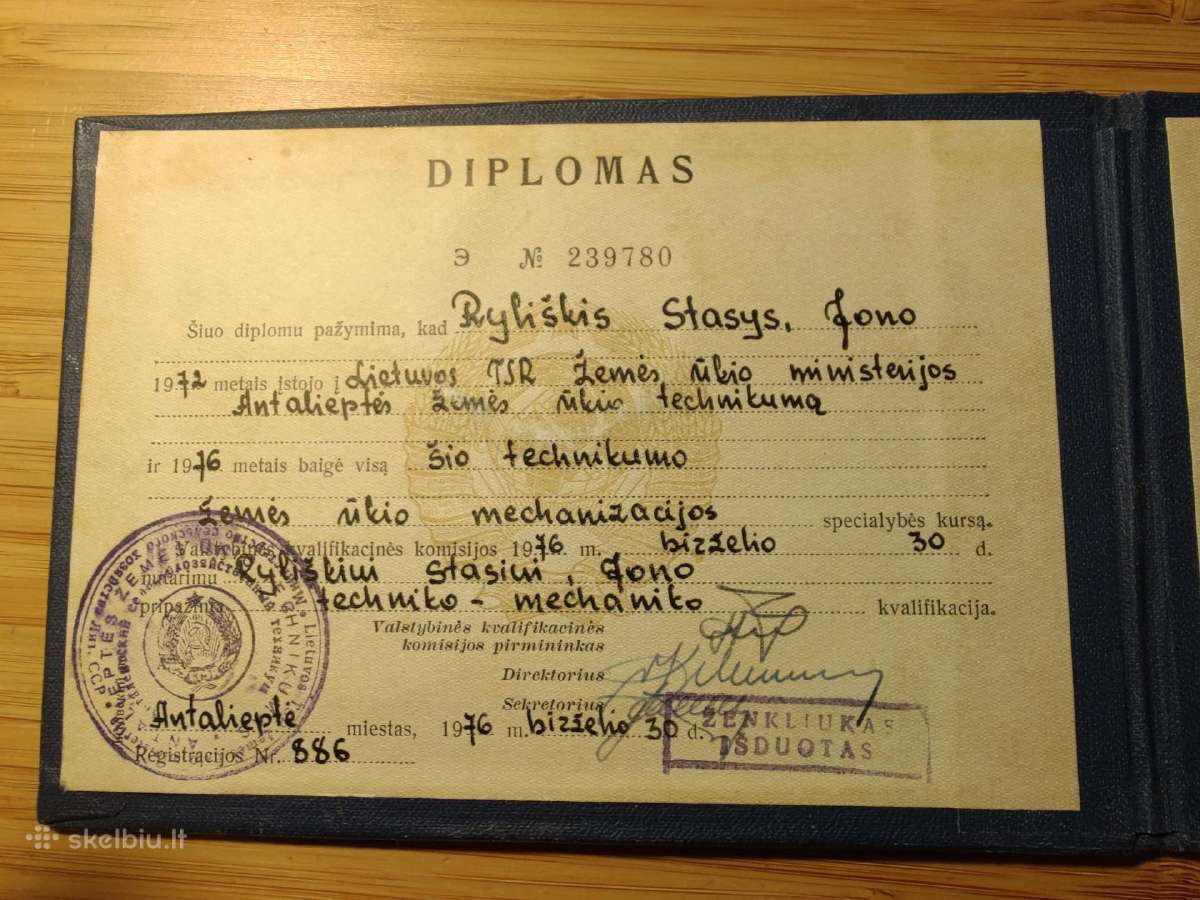 DIPLOMAS
Э № 239780
Šiuo diplomu pažymima, kad Ryliškis Stasys, Jono
1972 metais įstojo į Lietuvos TSR Žemės ūkio ministerijos
Antalieptės žemės ūkio technikumą
ir 1976 metais baigė visą šio technikumo
žemės ūkio mechanizacijos specialybės kursą.
Valstybinės kvalifikacinės komisijos 1976 m. birželio 30 d.
nutarimu Ryliškiui Stasiui, Jono
pripažinta techniko-mechaniko kvalifikacija.
Valstybinės kvalifikacinės
komisijos pirmininkas
Direktorius
Sekretorius
Antalieptė miestas, 1976 m. birželio 30 d.
Registracijos Nr. 886
ŽENKLIUKAS
IŠDUOTAS
skelbiu.lt